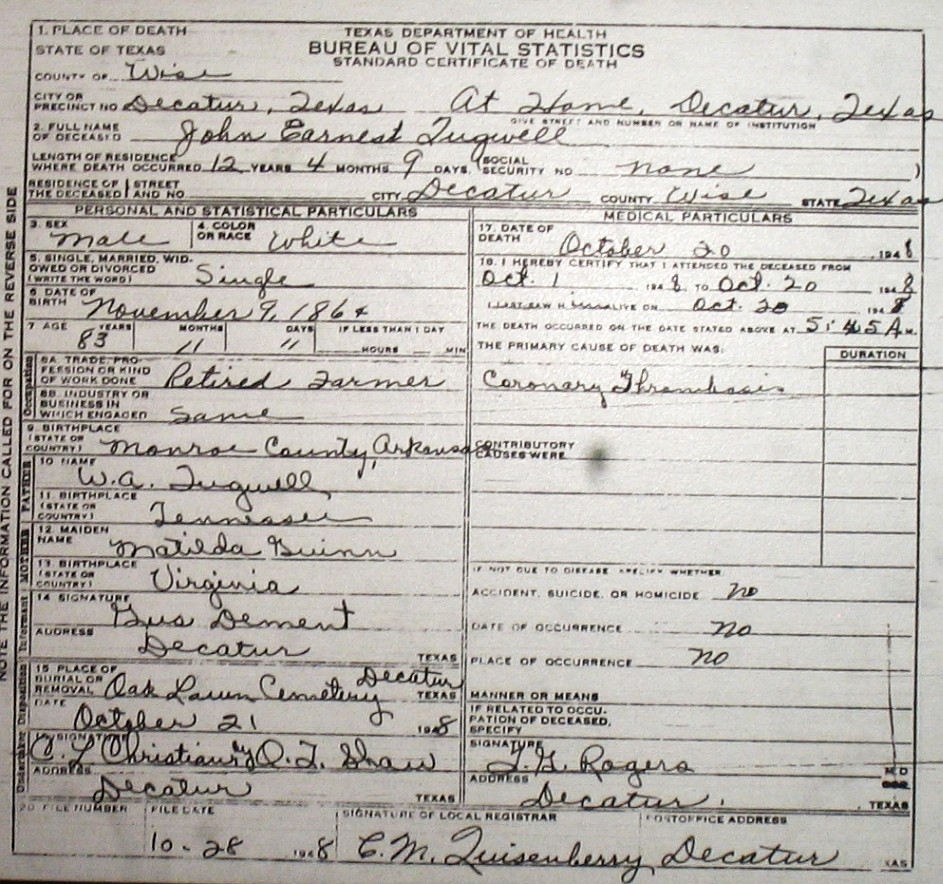 1. PLACE OF DEATH
STATE OF TEXAS
COUNTY OF Wise
TEXAS DEPARTMENT OF HEALTH
BUREAU OF VITAL STATISTICS
STANDARD CERTIFICATE OF DEATH
CITY OR PRECINCT NO Decatur, Texas At Home, Decatur, Texas
GIVE STREET AND NUMBER OR NAME OF INSTITUTION
2. FULL NAME OF DECEASED John Earnest Tugwell
LENGTH OF RESIDENCE WHERE DEATH OCCURRED 12 YEARS 4 MONTHS 9 DAYS. (SOCIAL SECURITY NO none )
RESIDENCE OF THE DECEASED STREET AND NO. CITY Decatur COUNTY Wise STATE Texas
PERSONAL AND STATISTICAL PARTICULARS
3. SEX Male 4. COLOR OR RACE White
5. SINGLE, MARRIED, WIDOWED OR DIVORCED (WRITE THE WORD) Single
6 DATE OF BIRTH November 9, 1864
7 AGE YEARS MONTHS DAYS IF LESS THAN 1 DAY
83 11 11 HOURS MIN
Occupation
8A. TRADE, PROFESSION OR KIND OF WORK DONE Retired Farmer
8B. INDUSTRY OR BUSINESS IN WHICH ENGAGED Same
9. BIRTHPLACE (STATE OR COUNTRY) Monroe County, Arkansas
FATHER
10 NAME W.A. Tugwell
11. BIRTHPLACE (STATE OR COUNTRY) Tennessee
MOTHER
12. MAIDEN NAME Matilda Guinn
13. BIRTHPLACE (STATE OR COUNTRY) Virginia
Informant
14 SIGNATURE Gus Dement
ADDRESS Decatur TEXAS
Undertaker Disposition
15. PLACE OF BURIAL OR REMOVAL Oak Lawn Cemetery Decatur TEXAS
DATE October 21 1948
SIGNATURE C. L Christian by O. T. Shaw
ADDRESS Decatur TEXAS
MEDICAL PARTICULARS
17. DATE OF DEATH October 20 1948
18. I HEREBY CERTIFY THAT I ATTENDED THE DECEASED FROM
Oct. 1 1948 TO Oct. 20 1948
I LAST SAW H ALIVE ON Oct. 20 1948
THE DEATH OCCURRED ON THE DATE STATED ABOVE AT 5:45 A M.
THE PRIMARY CAUSE OF DEATH WAS: DURATION
Coronary Thrombosis
CONTRIBUTORY CAUSES WERE
IF NOT DUE TO DISEASE SPECIFY WHETHER:
ACCIDENT, SUICIDE, OR HOMICIDE no
DATE OF OCCURRENCE no
PLACE OF OCCURRENCE no
MANNER OR MEANS
IF RELATED TO OCCUPATION OF DECEASED, SPECIFY
SIGNATURE Rogers M.D
ADDRESS Decatur, TEXAS
20. FILE NUMBER FILE DATE SIGNATURE OF LOCAL REGISTRAR POSTOFFICE ADDRESS
10-28 1948 C. M. Quisenberry Decatur
NOTE THE INFORMATION CALLED FOR ON THE REVERSE SIDE